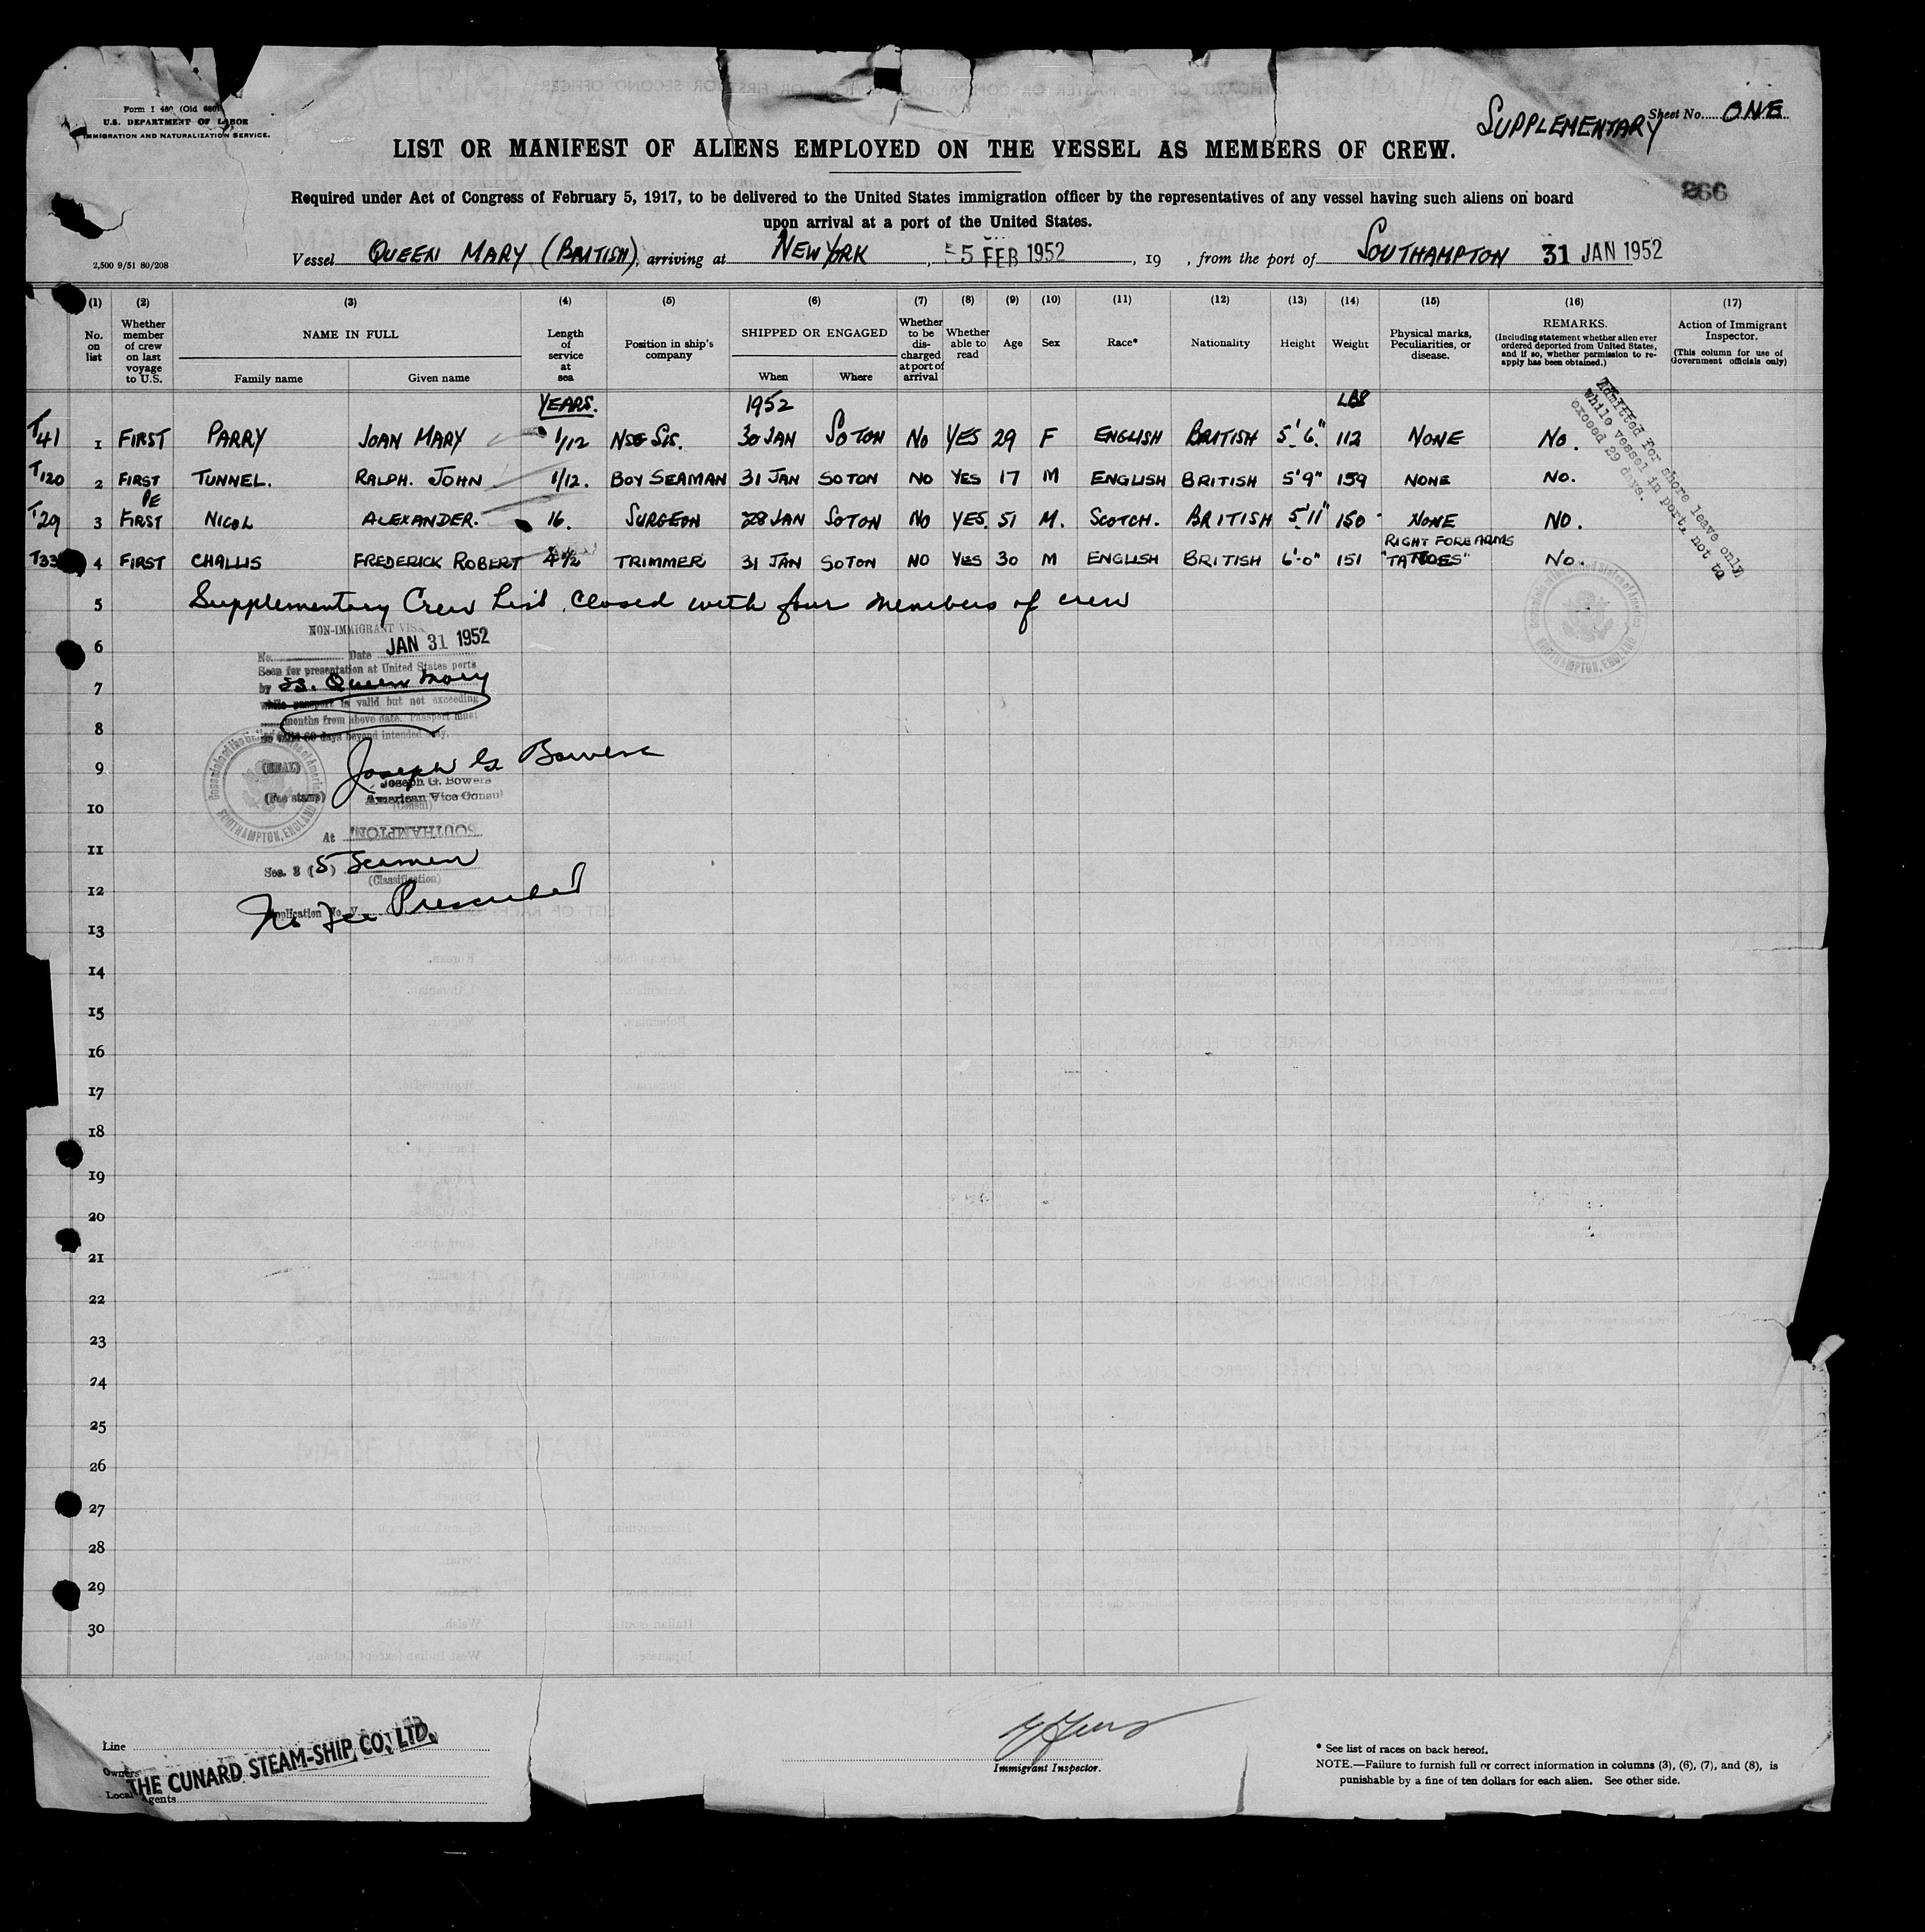 Form I 480 (Old 680)
U.S. DEPARTMENT OF LABOR
IMMIGRATION AND NATURALIZATION SERVICE.
SUPPLEMENTARY Sheet No. ONE
LIST OR MANIFEST OF ALIENS EMPLOYED ON THE VESSEL AS MEMBERS OF CREW.
266
Required under Act of Congress of February 5, 1917, to be delivered to the United States immigration officer by the representatives of any vessel having such aliens on board
upon arrival at a port of the United States.
2,500 9/51 80/208
Vessel QUEEN MARY (BRITISH), arriving at NEW YORK, 5 FEB 1952, 19 , from the port of SOUTHAMPTON 31 JAN 1952
(1) (2) (3) (4) (5) (6) (7) (8) (9) (10) (11) (12) (13) (14) (15) (16) (17)
No. on list
Whether member of crew on last voyage to U.S.
NAME IN FULL
Family name Given name
Length of service at sea
Position in ship's company
SHIPPED OR ENGAGED
When Where
Whether to be discharged at port of arrival
Whether able to read
Age
Sex
Race*
Nationality
Height
Weight
Physical marks, Peculiarities, or disease.
REMARKS.
(Including statement whether alien ever ordered deported from United States, and if so, whether permission to re-apply has been obtained.)
Action of Immigrant Inspector.
(This column for use of Government officials only)
YEARS. 1952 LBS
T41 1 FIRST PARRY JOAN MARY 1/12 NSG SIS. 30 JAN SOTON NO YES 29 F ENGLISH BRITISH 5'.6" 112 NONE NO.
T120 2 FIRST TUNNEL. RALPH. JOHN 1/12. BOY SEAMAN 31 JAN SOTON NO YES 17 M ENGLISH BRITISH 5'9" 159 NONE NO.
T29 3 FIRST NICOL ALEXANDER. 16. SURGEON 28 JAN SOTON NO YES. 51 M. SCOTCH. BRITISH 5'11" 150 NONE NO.
RIGHT FOREARMS
T33 4 FIRST CHALLIS FREDERICK ROBERT 4½ TRIMMER 31 JAN SOTON NO YES 30 M ENGLISH BRITISH 6'-0" 151 "TATTOES" NO.
Admitted for shore leave only
while vessel in port, not to
exceed 29 days.
5 Supplementary Crew List Closed with four members of crew
NON-IMMIGRANT VISA
No. Date JAN 31 1952
Seen for presentation at United States ports
by ss. Queen Mary
while passport is valid but not exceeding
months from above date. Passport must
be valid 60 days beyond intended stay.
Joseph G. Bowers
(SEAL)
Joseph G. Bowers
(Fee stamp) American Vice Consul
(Consul)
At SOUTHAMPTON
Sec. 3 (5) Seamen
(Classification)
Application No. V
No Fee Prescribed
Consulate of the United States of America
SOUTHAMPTON, ENGLAND
Consulate of the United States of America
SOUTHAMPTON, ENGLAND
6
7
8
9
10
11
12
13
14
15
16
17
18
19
20
21
22
23
24
25
26
27
28
29
30
Line
Owners
Local Agents
THE CUNARD STEAM-SHIP CO., LTD.
Immigrant Inspector.
* See list of races on back hereof.
NOTE.—Failure to furnish full or correct information in columns (3), (6), (7), and (8), is
punishable by a fine of ten dollars for each alien. See other side.